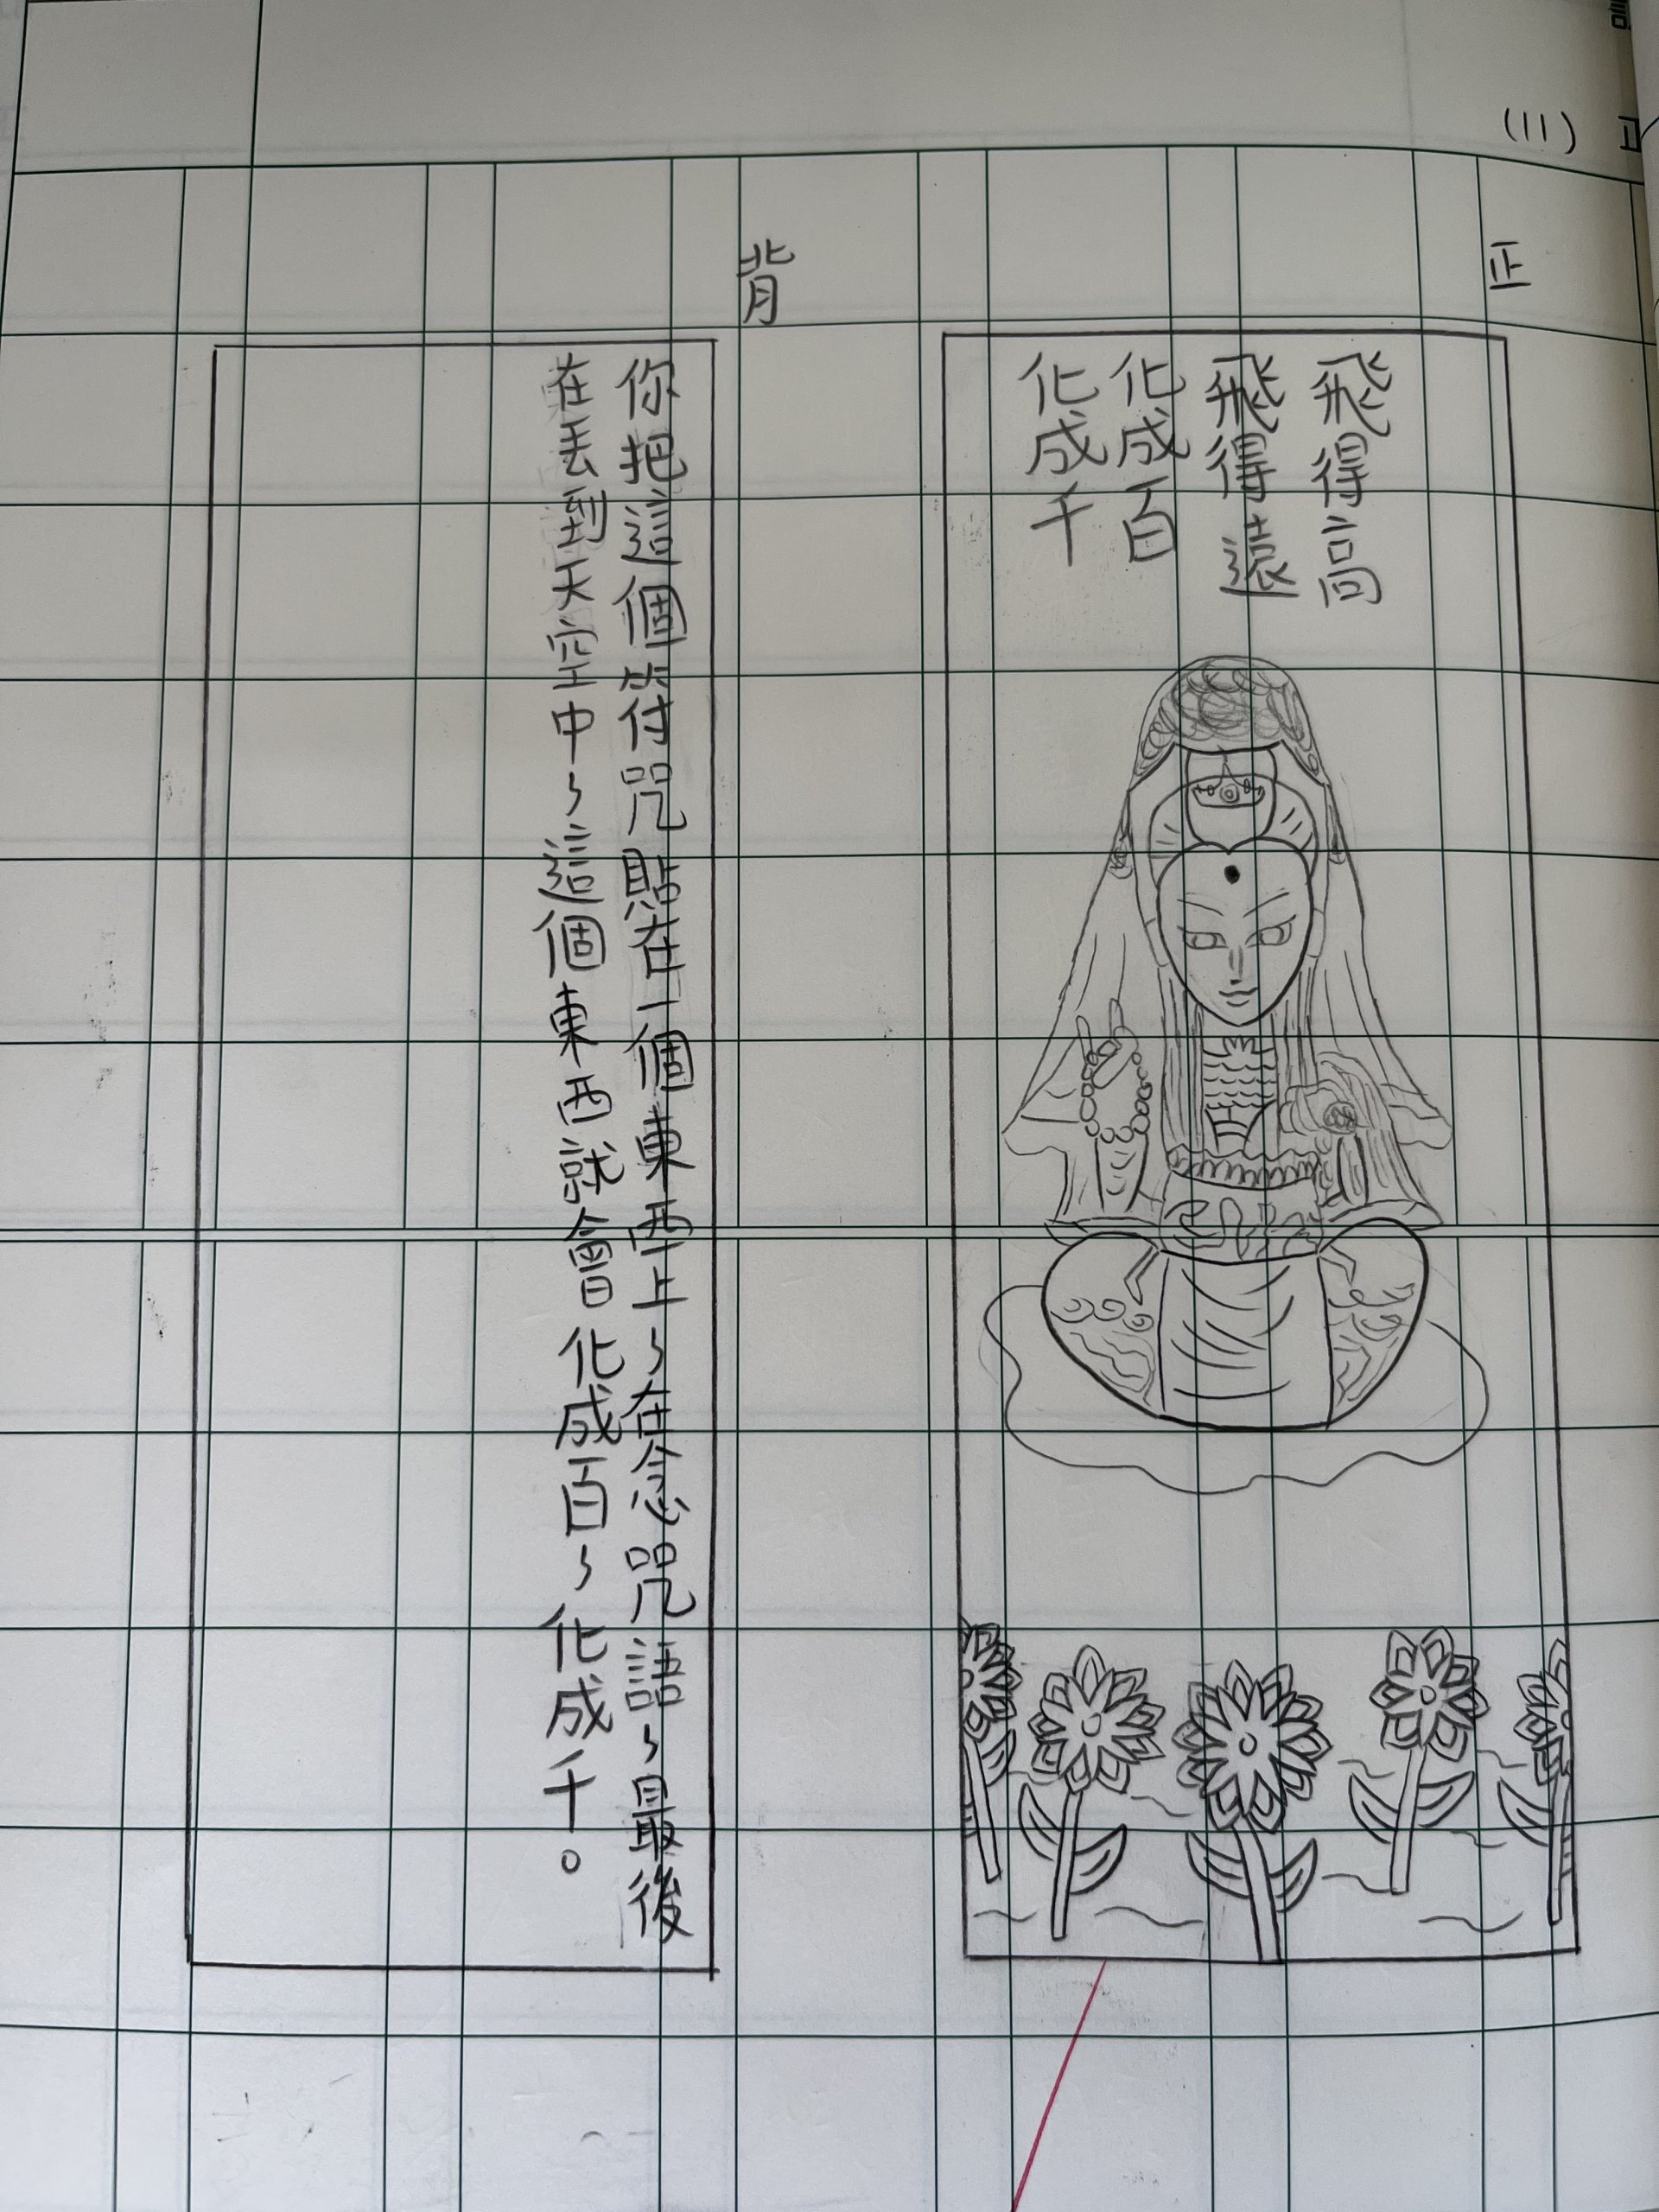 (11)
正
飛得高
飛得遠
化成百
化成千
背
你把這個符咒貼在一個東西上、在念咒語、最後
在丟到天空中、這個東西就會化成百、化成千。